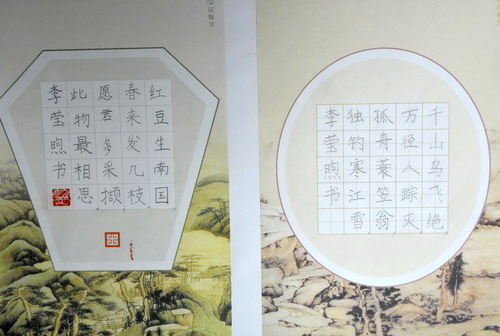 红豆生南国
春来发几枝
愿君多采撷
此物最相思
李莹煦书
千山鸟飞绝
万径人踪灭
孤舟蓑笠翁
独钓寒江雪
李莹煦书